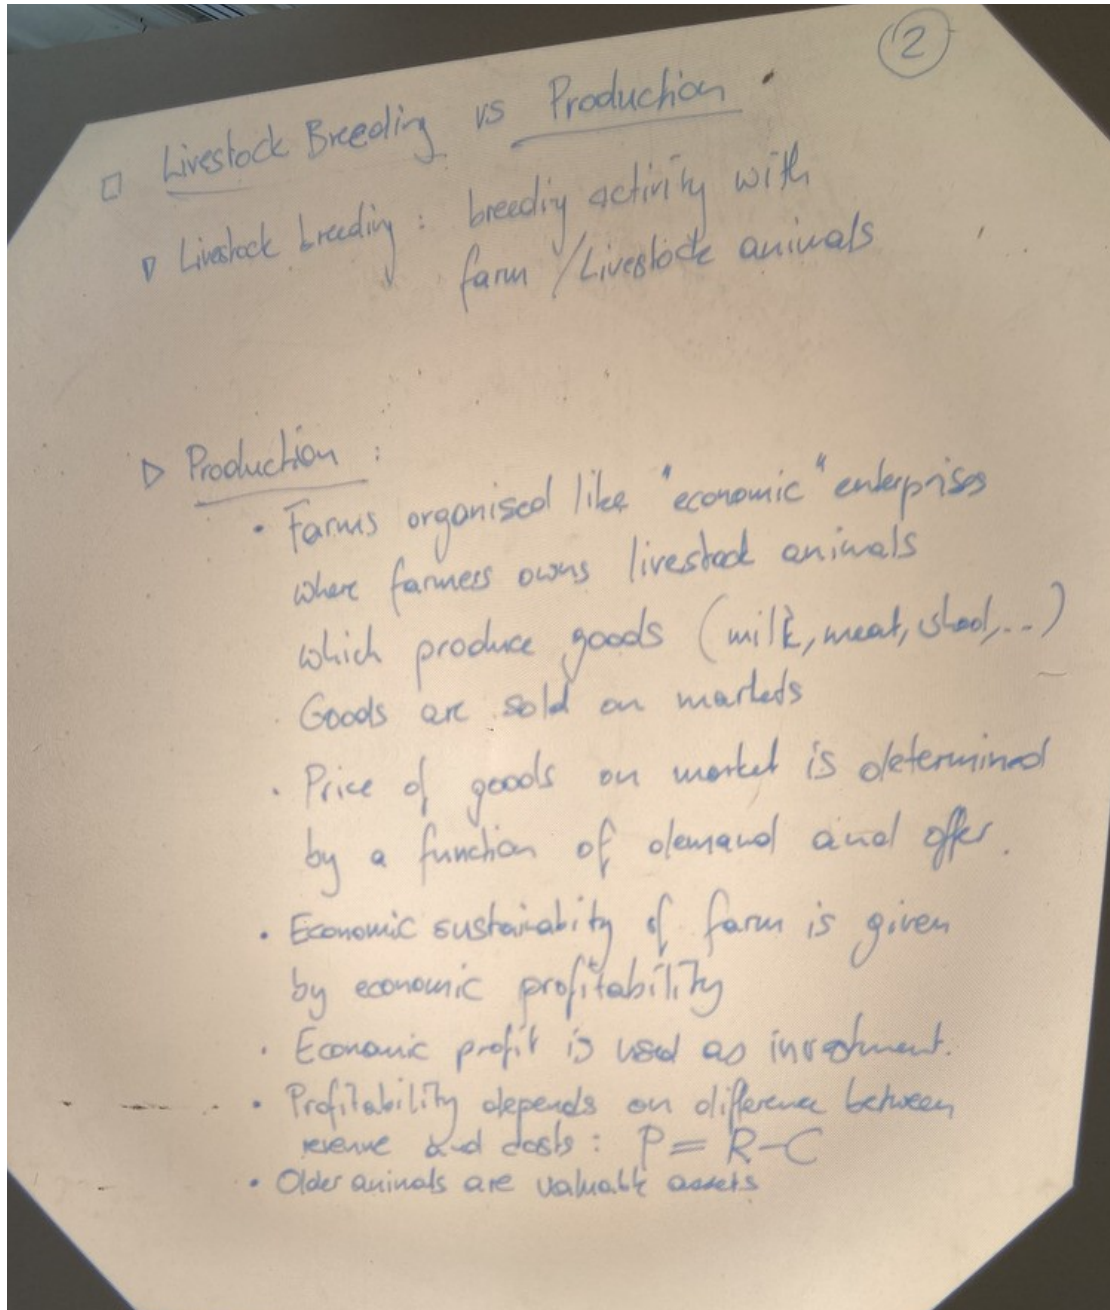 2
□ Livestock Breeding vs Production
▷ Livestock breeding : breeding activity with
farm / Livestock animals
▷ Production :
• Farms organised like "economic" enterprises
where farmers owns livestock animals
which produce goods (milk, meat, ...)
Goods are sold on markets
• Price of goods on market is determined
by a function of demand and offer.
• Economic sustainability of farm is given
by economic profitability
• Economic profit is used as investment.
• Profitability depends on difference between
revenue and costs : P = R - C
• Older animals are valuable assets